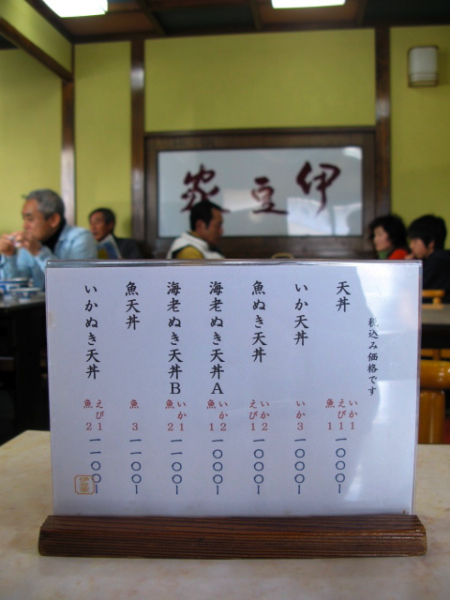 伊豆家
税込み価格です
天丼 いか1 えび1 魚1 一〇〇〇ー
いか天丼 いか3 一〇〇〇ー
魚ぬき天丼 いか2 えび1 一〇〇〇ー
海老ぬき天丼A いか2 魚1 一〇〇〇ー
海老ぬき天丼B いか1 魚2 一一〇〇ー
魚天丼 魚3 一一〇〇ー
いかぬき天丼 えび1 魚2 一一〇〇ー